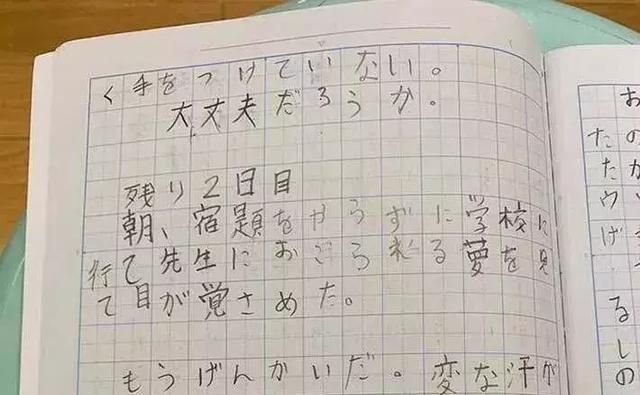 く手をつけていない。
大丈夫だろうか。
残り2日目
朝、宿題をやらずに学校に
行て先生におこられる夢を見
て目が覚さめた。
もうげんかいだ。変な汗が
お
たの
たか
ウ
げ
る
しの